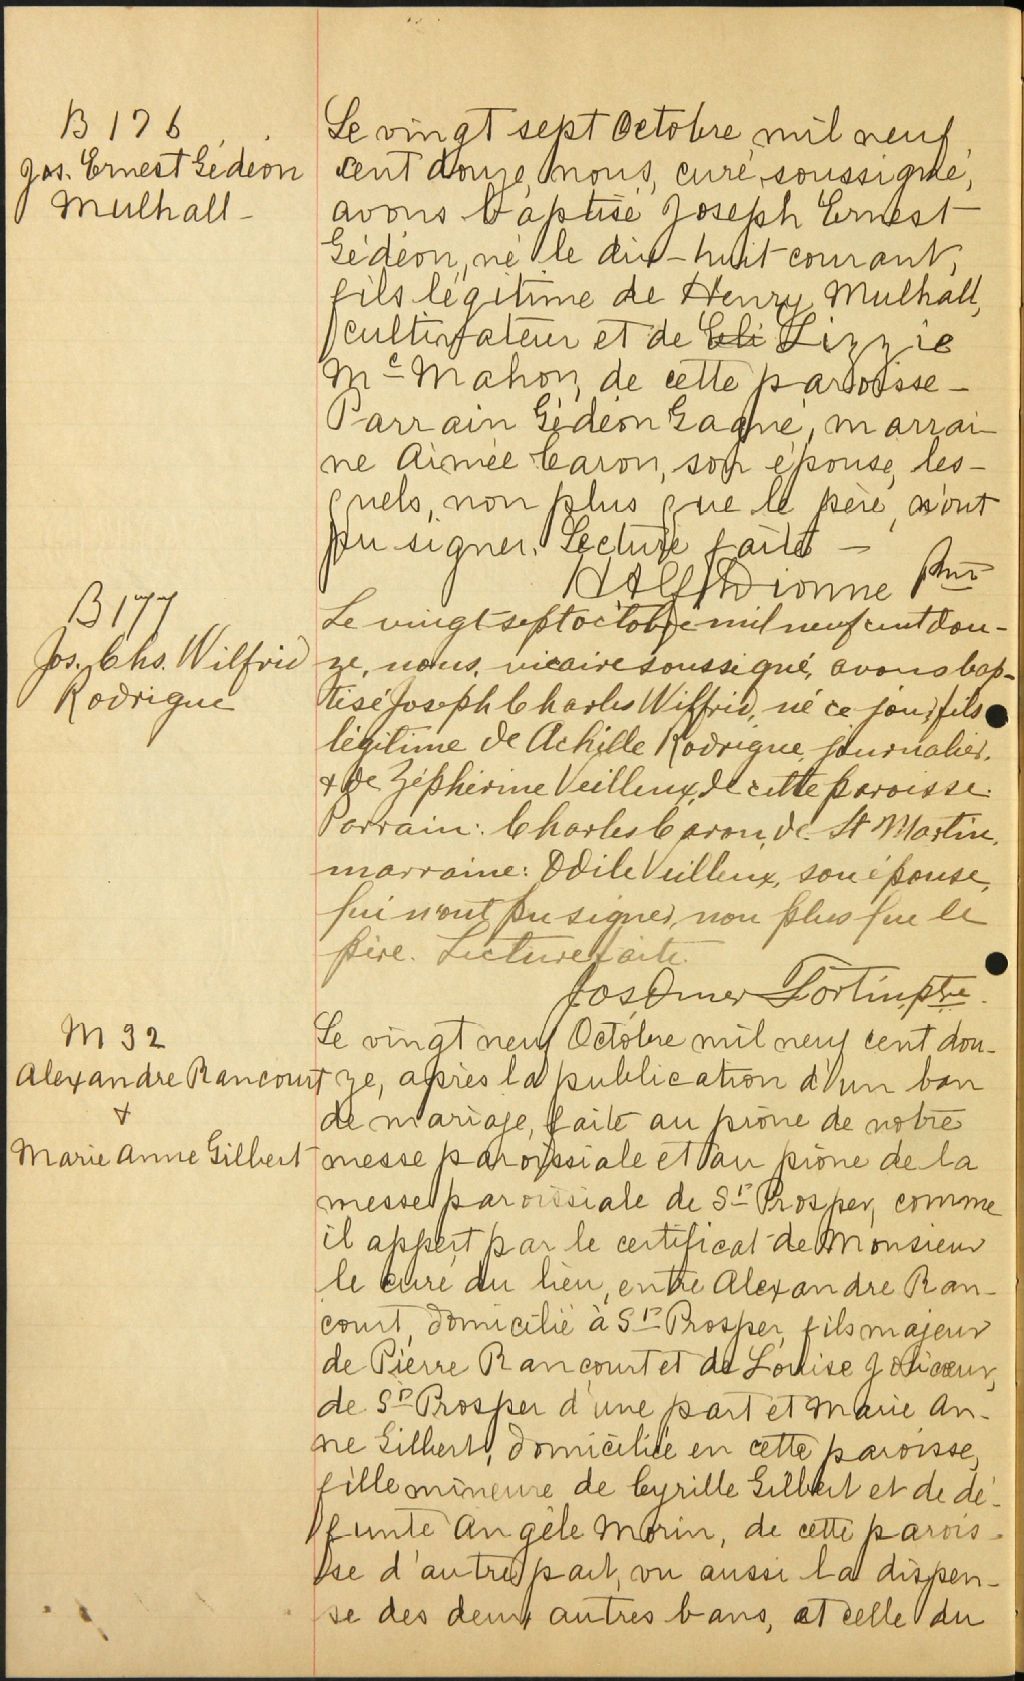 B 176
Jos. Ernest Gédéon
Mulhall -
Le vingt sept Octobre mil neuf
cent douze, nous, curé soussigné,
avons baptisé Joseph Ernest
Gédéon, né le dix-huit courant,
fils légitime de Henry Mulhall,
cultivateur et de Eli Lizzie
Mc Mahon, de cette paroisse -
Parrain Gédéon Gagné, marrai-
ne Aimée Caron, son épouse, les-
quels, non plus que le père, n'ont
pu signer. Lecture faite -
H Alf Dionne Ptre
B 177
Jos. Chs. Wilfrid
Rodrigue
Le vingt-sept octobre mil neuf cent dou-
ze, nous, vicaire soussigné, avons bap-
tisé Joseph Charles Wilfrid, né ce jour, fils
légitime de Achille Rodrigue, journalier,
& de Zéphérine Veilleux, de cette paroisse.
Parrain: Charles Caron, de St Martin,
marraine: Odile Veilleux, son épouse,
qui n'ont pu signer, non plus que le
père. Lecture faite.
Jos Omer Fortin, ptre.
M 32
Alexandre Rancourt
&
Marie Anne Gilbert
Le vingt neuf Octobre mil neuf cent dou-
ze, après la publication d'un ban
de mariage, faite au prône de notre
messe paroissiale et au prône de la
messe paroissiale de St Prosper, comme
il appert par le certificat de Monsieur
le curé du lieu, entre Alexandre Ran-
court, domicilié à St Prosper, fils majeur
de Pierre Rancourt et de Louise Jolicoeur,
de St Prosper d'une part et Marie An-
ne Gilbert, domiciliée en cette paroisse,
fille mineure de Cyrille Gilbert et de dé-
funte Angèle Morin, de cette parois-
se d'autre part, vu aussi la dispen-
se des deux autres bans, et celle du